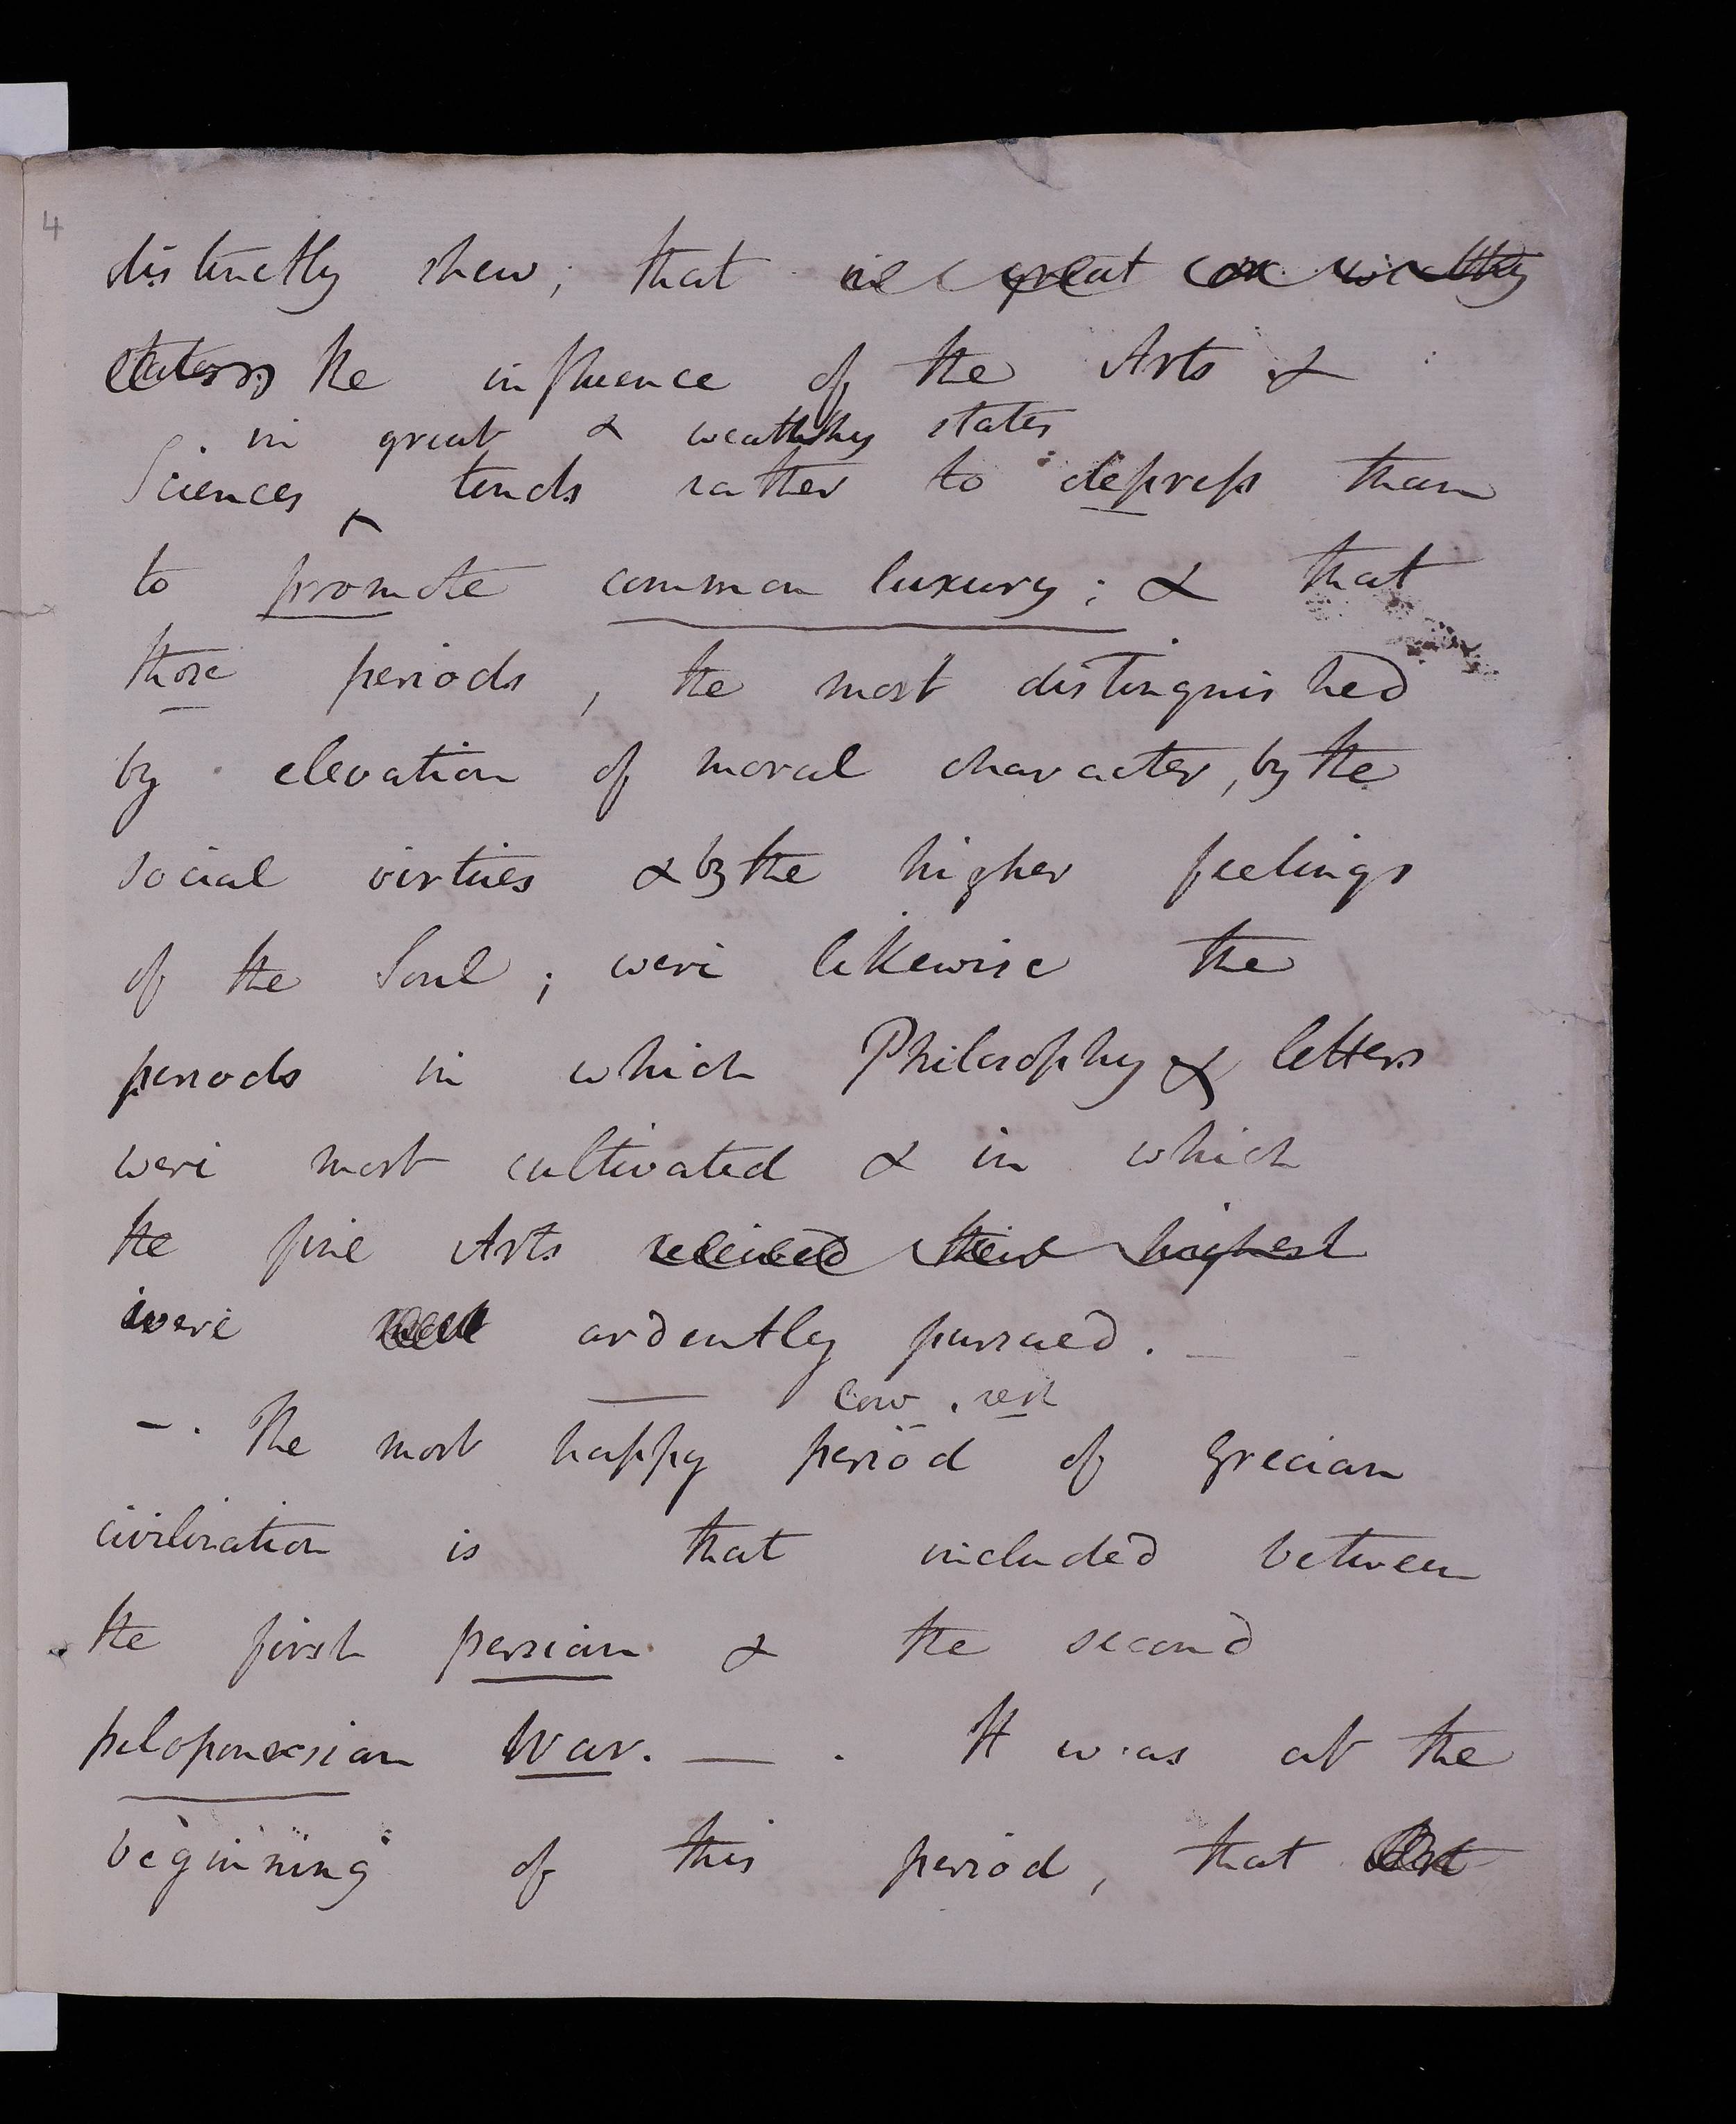 4
distinctly shew; that in great & wealthy
states the influence of the Arts &
in great & wealthy states
Sciences ‸ tends rather to depreſs than
to promote common luxury; & that
those periods, the most distinguished
by elevation of moral character, by the
social virtues & by the higher feelings
of the Soul; were likewise the
periods in which Philosophy & letters
were most cultivated & in which
the fine Arts received their highest
were ardently pursued. —
— low . rest
—. The most happy period of Grecian
civilization is that included between
the first persian & the second
peloponesian War. — . It was at the
beginning of this period, that